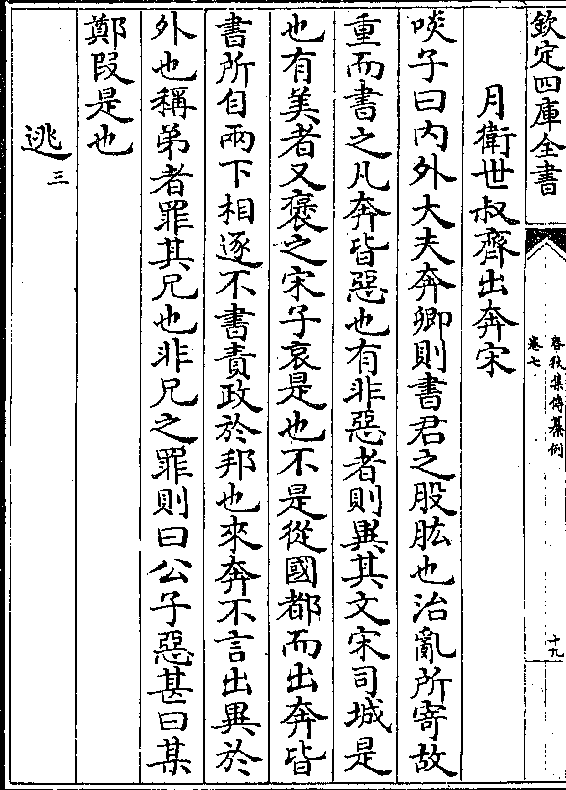 欽定四庫全書
春秋集傳纂例
卷七
十九
月衛世叔齊出奔宋
啖子曰内外大夫奔卿則書君之股肱也治亂所寄故
重而書之凡奔皆惡也有非惡者則異其文宋司城是
也有美者又褒之宋子哀是也不是從國都而出奔皆
書所自兩下相逐不書責政於邦也來奔不言出異於
外也稱弟者罪其兄也非兄之罪則曰公子惡甚曰某
鄭段是也
逃三